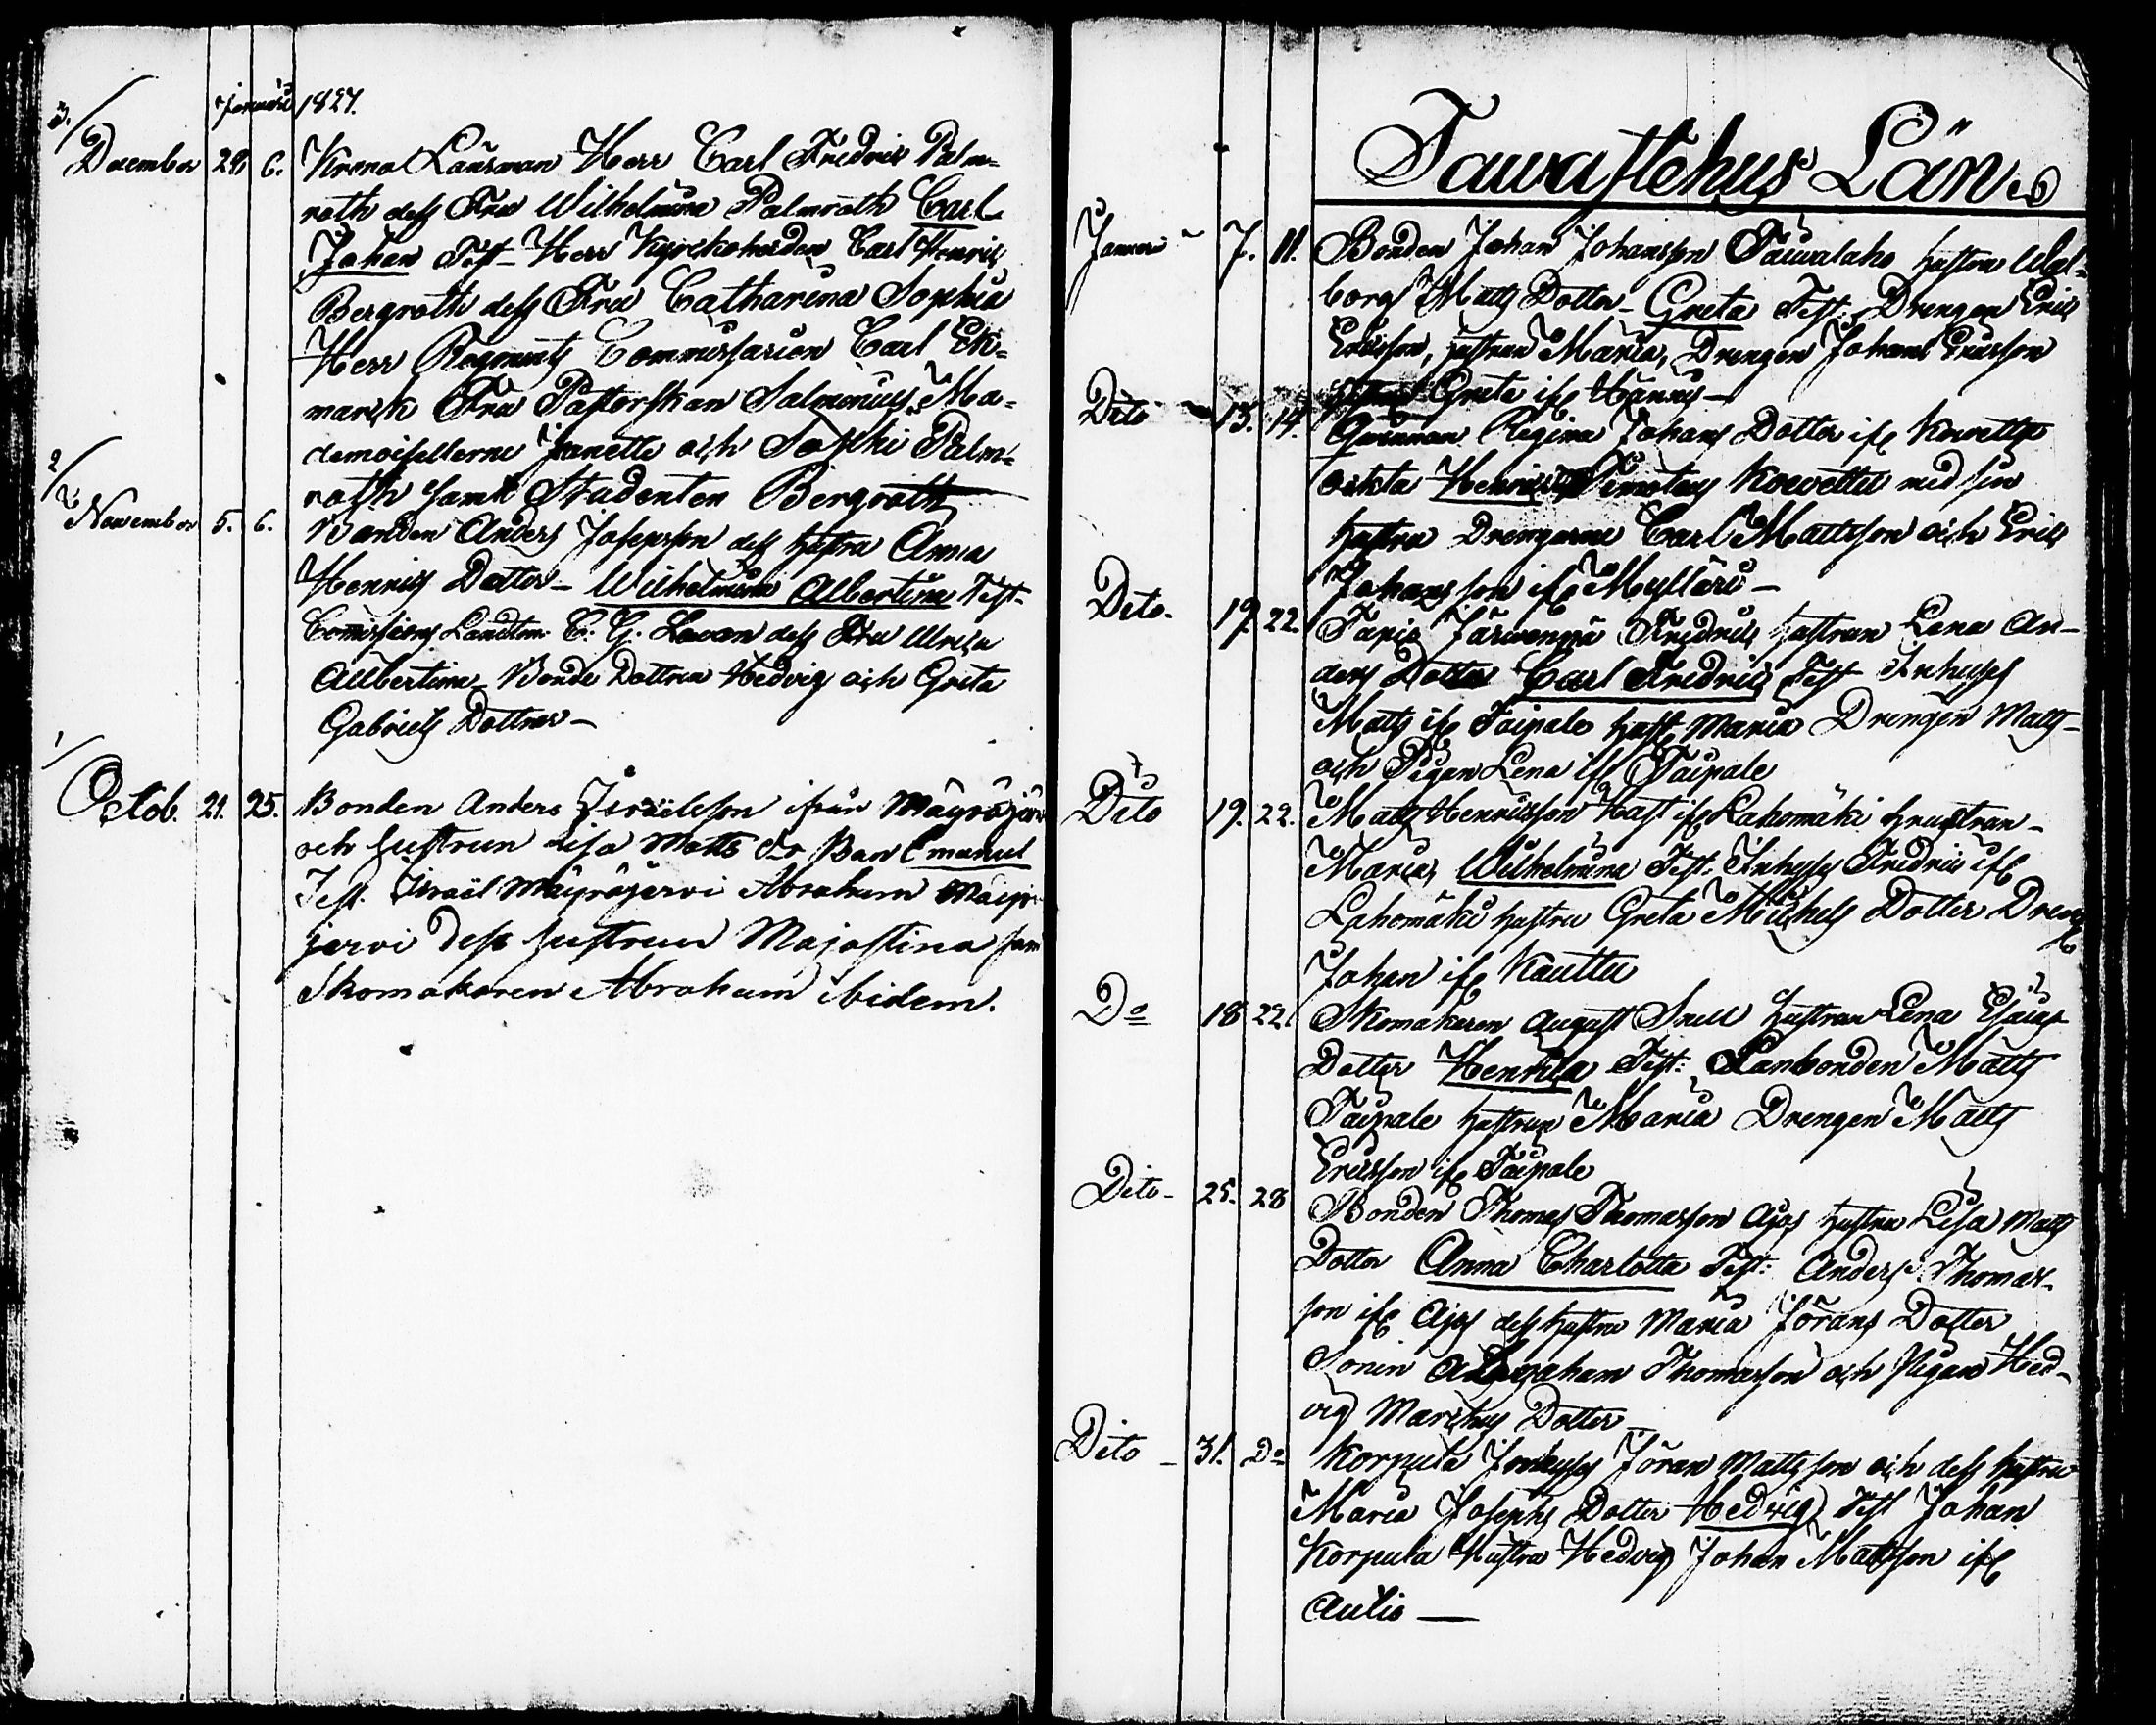 Januari 1827.
3/
December 28 6. Krono Länsman Herr Carl Fredric Palm-
roth dess Fru Wilhelmina Palmroth Carl
Johan Test- Herr Kyrckoherden Carl Henric
Bergroth dess Fru Catharina Sophia
Herr Regements Commissarien Carl Ek-
marck Fru Pastorskan Salmenius, Ma-
demoisellerne Janette och Sophi Palm-
roth samt Studenten Bergroth
2/
November 5. 6. Bonden Anders Josepsson dess hustru Anna
Henrics Dotter- Wilhelmina Albertina Test-
Comissions Landtm. C. G. Lavon dess Fru Ulrica
Albertina- Bonde Dottren Hedvig och Greta
Gabriels Dottrar-
1/
Octob. 21. 25. Bonden Anders Israëlsson ifrån Mäyräjärv
och hustrun Lisa Matts dr Barn Emanuel
Test. Israël Mäyräjärvi Abraham Mäyr-
järvi dess hustrun Majastina sam
Skomakaren Abraham ibidem.
Tawastehus Län
Januari 7. 11. Bonden Johan Johansson Tawalaho hustru Wal-
borg Matts Dotter- Greta Test: Drengen Eric
Ericsson, hustrun Maria, Drengen Johan Ericsson
hustrun Greta ifr Hännis-
Dito 13. 14. Qwinnan Regina Johans Dotter ifr Kowettu
oäkta Henric Timoteus Kowettu med sin
hustru Drengarne Carl Mattsson och Eric
Johansson ifr Mylläri-
Dito. 19. 22. Torp Järwenpä Fredric hustrun Lena An-
ders Dotter Carl Fredric Test Inhyses
Matts ifr Taipale hust Maria Drengen Matts-
och Pigan Lena ifr Taipale
Dito 19. 22. Matts Henricsson Hast ifr Lahomäki hustrun-
Maria, Wilhelmina Test: Inhyses Fredric ifr
Lahomäki hustru Greta Michels Dotter Dreng
Johan ifr Kauttu
Do 18 22. Skomakaren August Snell hustrun Lena Esaias
Dotter Henrica Test: Lanbonden Matts
Taipale hustrun Maria Drengen Matts
Ericsson ifr Taipale
Dito- 25. 28 Bonden Thomas Thomasson Ajos hustru Lisa Matts
Dotter Anna Charlotta Test: Anders Thomas-
son ifr Ajos dess hustru Maria Jörans Dotter
Sonen Abraham Thomasson och Pigan Hed-
vig Marchus Dotter-
Dito - 31. Do Korpula Inhyses Jöran Mattsson och dess hustru
Maria Josephs Dotter Hedvig Test Johan
Korpula Hustru Hedvig Johan Mattson ifr
Aulio-